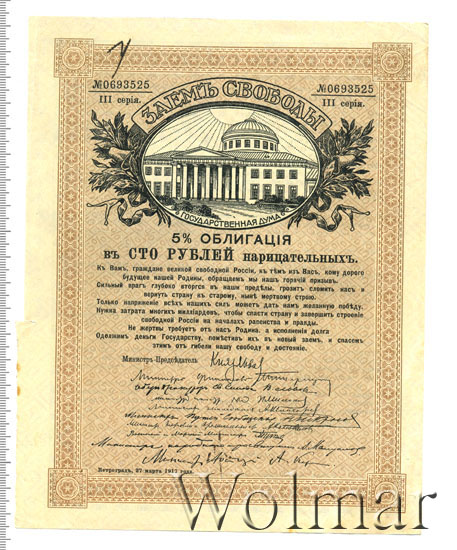 №0693525
№0693525
III серія.
III серія.
ЗАЕМЪ СВОБОДЫ
ГОСУДАРСТВЕННАЯ ДУМА
5% ОБЛИГАЦІЯ
въ СТО РУБЛЕЙ нарицательныхъ.
Къ Вамъ, граждане великой свободной Россіи, къ тѣмъ изъ Васъ, кому дорого
будущее нашей Родины, обращаемъ мы нашъ горячій призывъ.
Сильный врагъ глубоко вторгся въ наши предѣлы, грозитъ сломить насъ и
вернуть страну къ старому, нынѣ мертвому строю.
Только напряженіе всѣхъ нашихъ силъ можетъ дать намъ желанную побѣду.
Нужна затрата многихъ милліардовъ, чтобы спасти страну и завершить строеніе
свободной Россіи на началахъ равенства и правды.
Не жертвы требуетъ отъ насъ Родина, а исполненія долга
Одолжимъ деньги Государству, помѣстивъ ихъ въ новый заемъ, и спасемъ
этимъ отъ гибели нашу свободу и достояніе.
Министръ-Предсѣдатель Кн. Львовъ
Министръ Финансовъ
Петроградъ, 27 марта 1917 года.
Wolmar